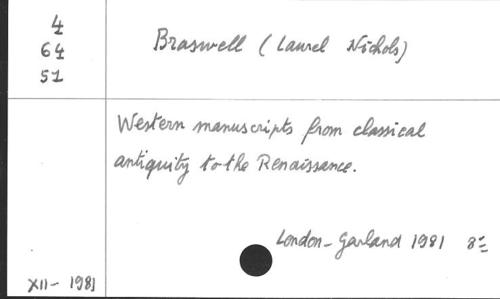 4
64
51
Braswell (Laurel Nichols)
Western manuscripts from classical
antiquity to the Renaissance.
London - Garland 1981 8=
XII - 1981